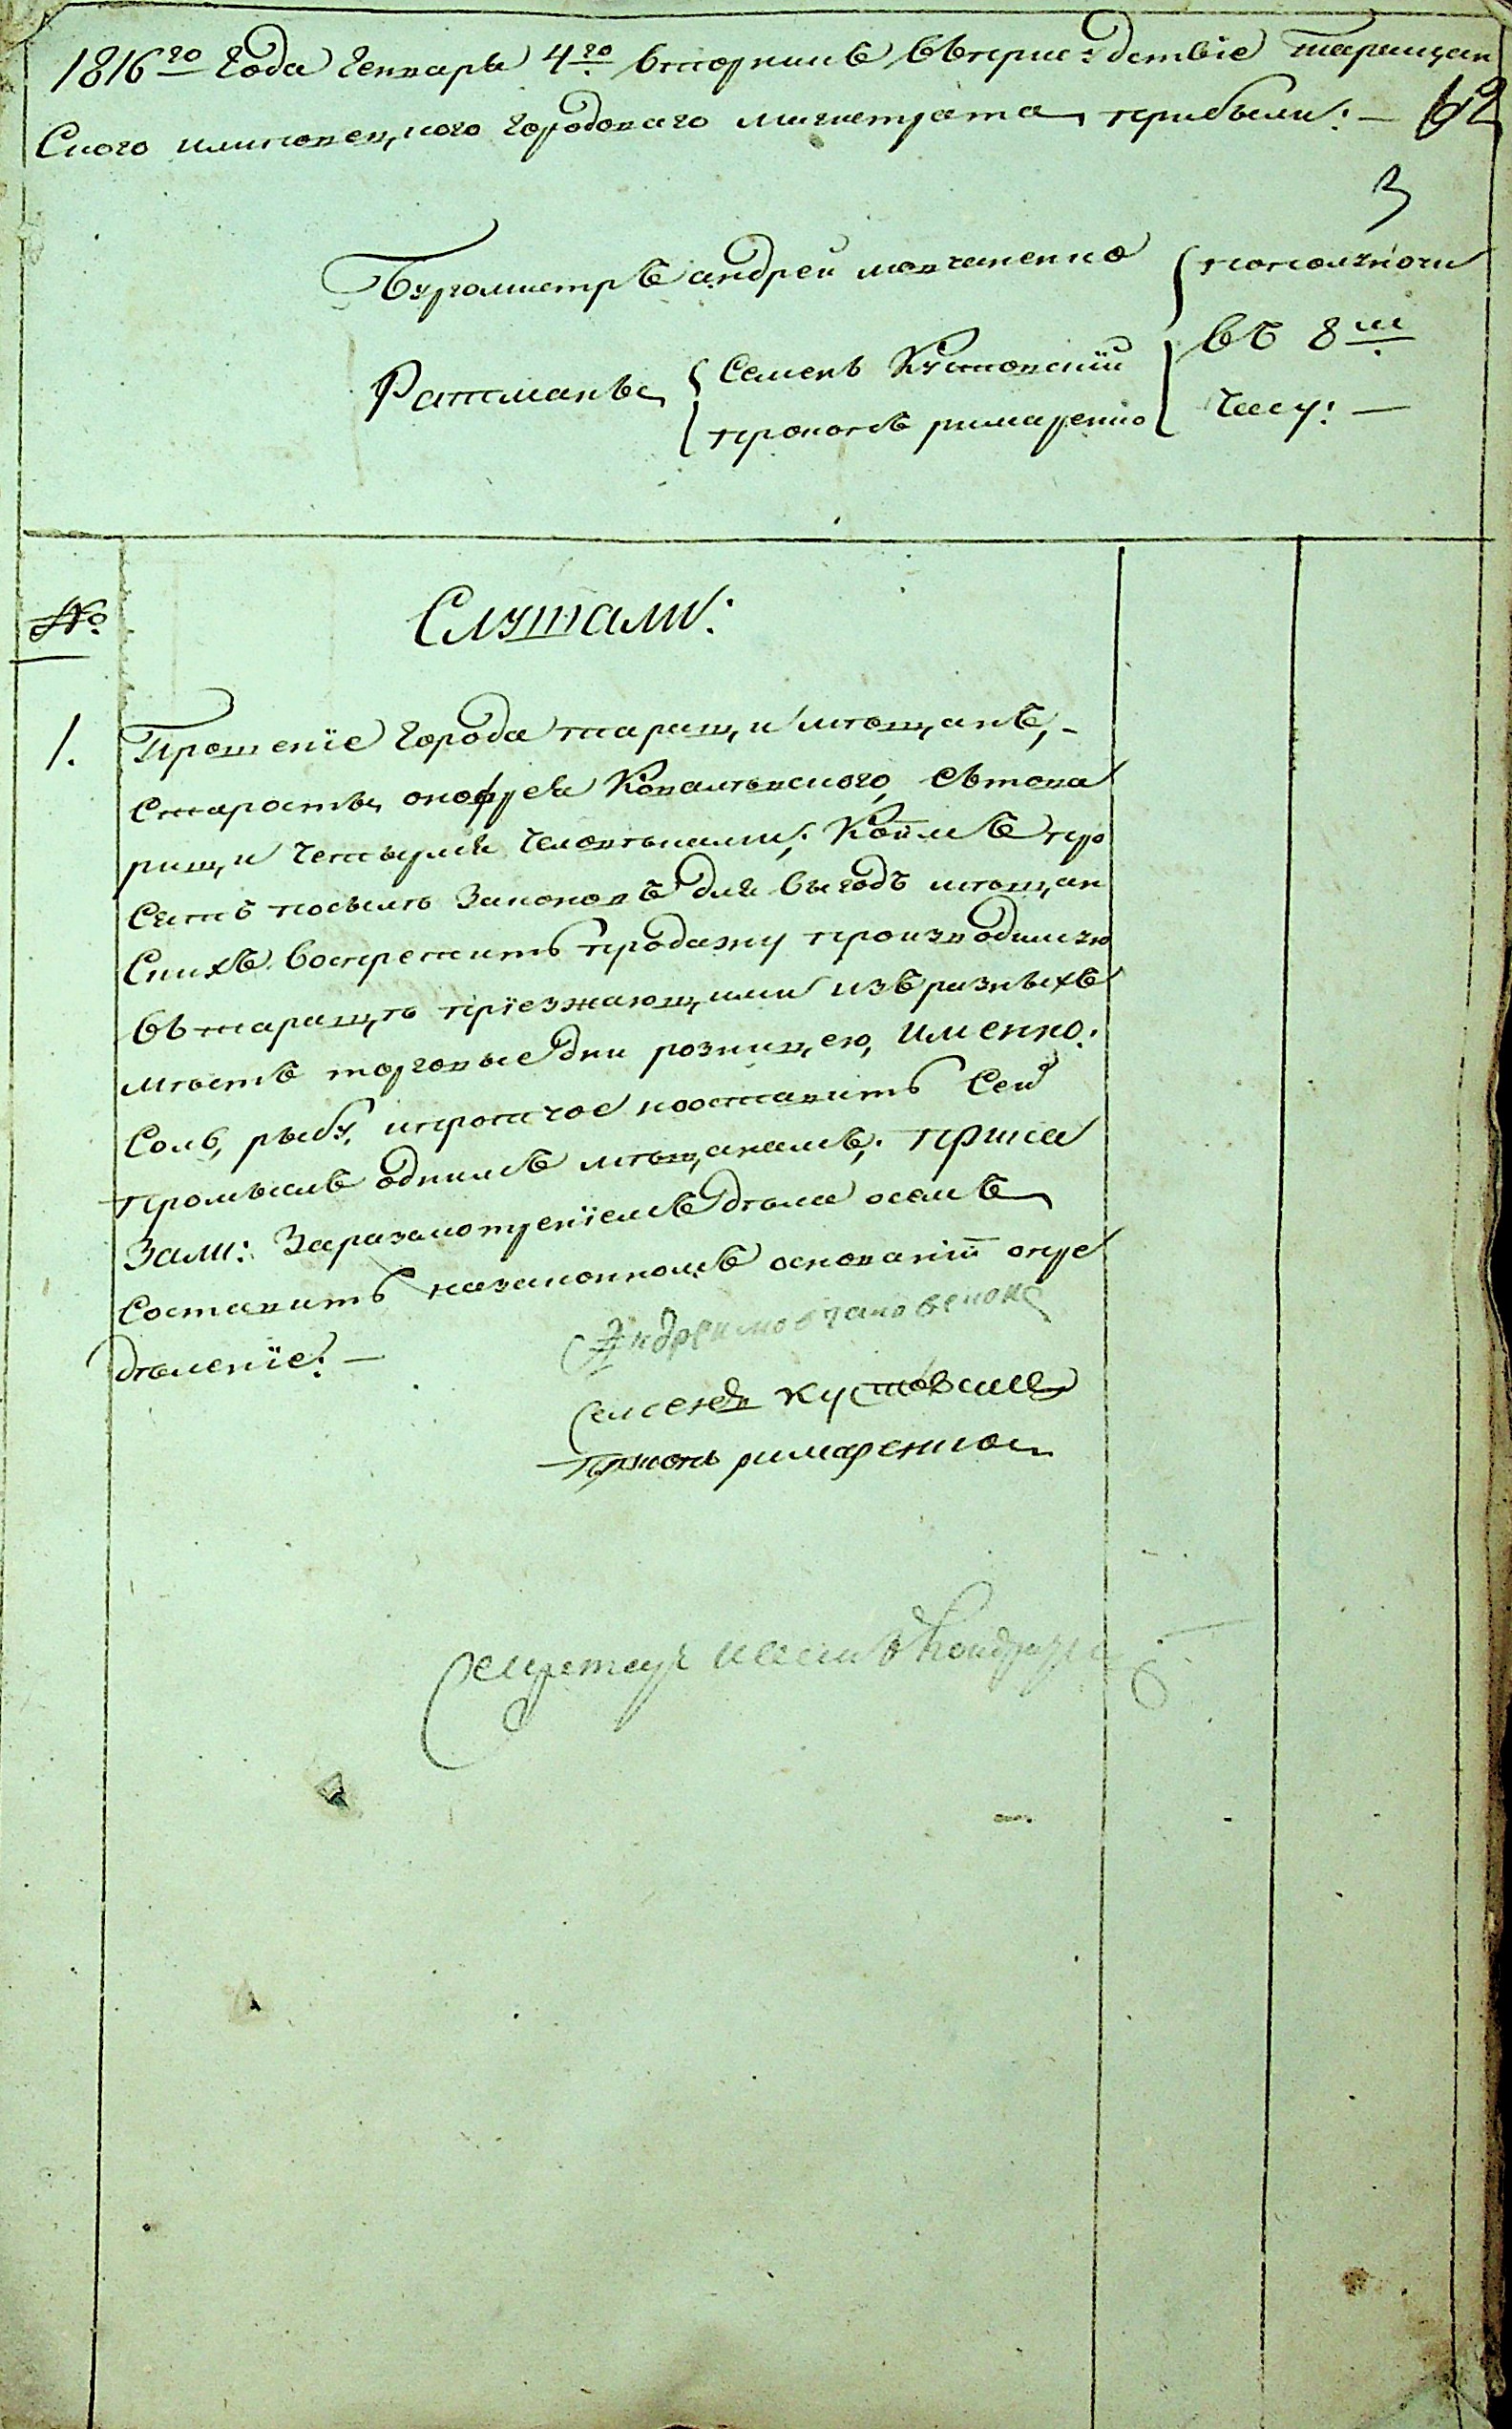 1816го года генваря 4го вторникъ въ присудствіе таращан
ского магистрата прибыли: — 62
3
Бургомистръ андрей мовчаненко пополуночи
Ратманы семенъ Кустовскій въ 8м
прокопъ римаренко часу: —
№
Слушали:
1. Прошеніе города таращи мѣщанъ, -
старосты онофрея Ковалевского, съ това
рищи четырмя человѣками; коимъ про
сятъ посылѣ законовъ для выгодъ мѣщан
скихъ воспретить продажу производимую
въ таращѣ пріезжающими изъ разныхъ
мѣстъ торговые дни розницею, именно:
соль, рыбу, и протчое и оставить сей
промыслъ однимъ мѣщанамъ; прика
зали: За разсмотреніемъ дѣла осемъ
составить на законномъ основаніи опре
дѣленіе: —
Андрей мовчановенко
Семенъ кустовский
Прокопъ римаренко
Секретарь